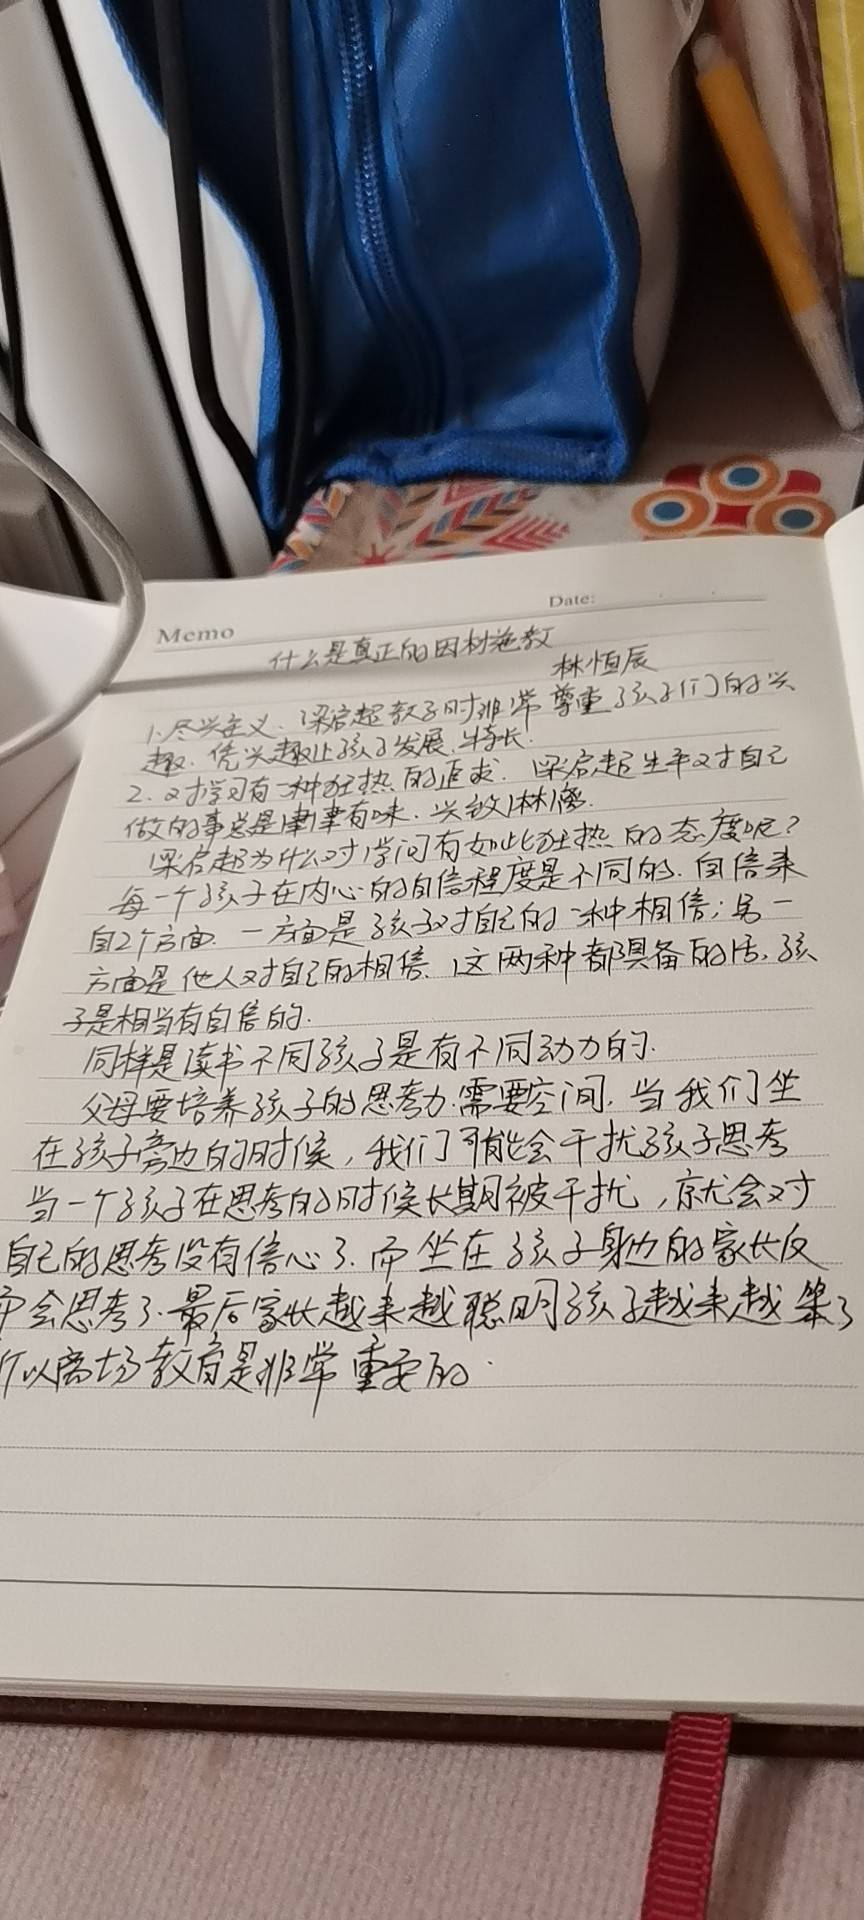 Memo
Date:
什么是真正的因材施教
林恒辰
1.尽兴主义、梁启超教子时非常尊重孩子们的兴
趣.凭兴趣让孩子发展.特长.
2.对学习有一种狂热的追求.梁启超生平对自己
做的事总是津津有味.兴致淋漓.
梁启超为什么对学问有如此狂热的态度呢?
每一个孩子在内心的自信程度是不同的.自信来
自2个方面.一方面是孩子对自己的一种相信;另一
方面是他人对自己的相信.这两种都具备的话,孩
子是相当有自信的.
同样是读书不同孩子是有不同动力的.
父母要培养孩子的思考力.需要空间.当我们坐
在孩子旁边的时候,我们可能会干扰孩子思考
当一个孩子在思考的时候长期被干扰,就会对
自己的思考没有信心了.而坐在孩子身边的家长反
而会思考了.最后家长越来越聪明孩子越来越笨了
所以离场教育是非常重要的.